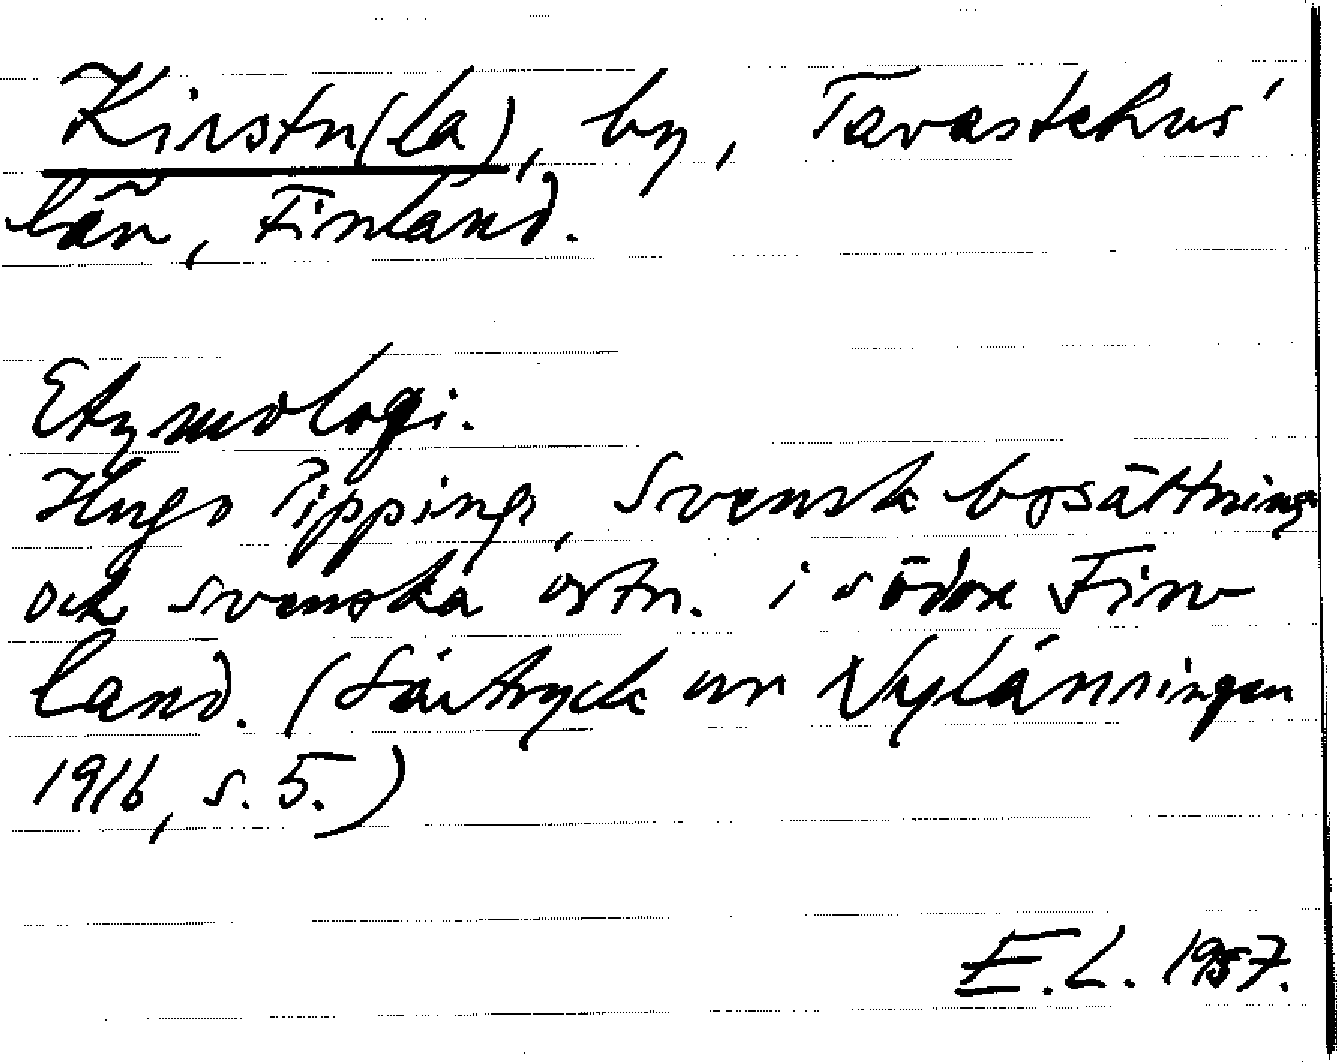 Kirstu(la), by, Tavastehus'
län, Finland.
Etymologi.
Hugo Pipping, Svensk bosättning
och svenska ortn. i södra Fin-
land. (Särtryck ur Nylänningen
1916, s. 5.)
E.L. 1957.